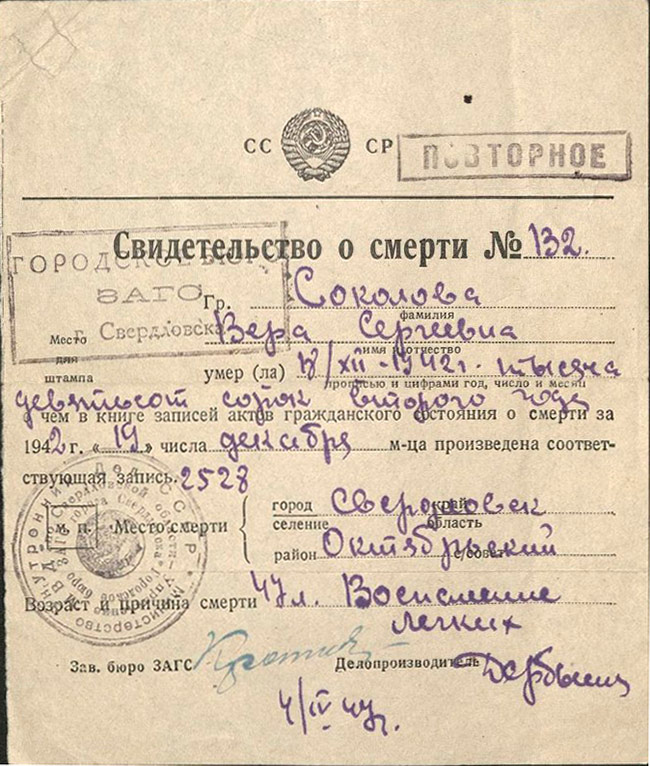 СС СР
ПОВТОРНОЕ
Свидетельство о смерти № 132.
ГОРОДСКОЕ БЮРО
ЗАГС
г. Свердловска
Гр. Соколова
фамилия
Вера Сергеевна
имя и отчество
Место
для
штампа
умер (ла) 18/XII-1942г. тысяча
прописью и цифрами год, число и месяц
девятьсот сорок второго года
о чем в книге записей актов гражданского состояния о смерти за
1942 г. «19» числа декабря м-ца произведена соответ-
ствующая запись. 2528
м. п.
Место смерти
город Свердловск край
селение область
район Октябрьский с/совет
Возраст и причина смерти 47 л. Воспаление
легких
Зав. бюро ЗАГС
Делопроизводитель
4/IV 47г.